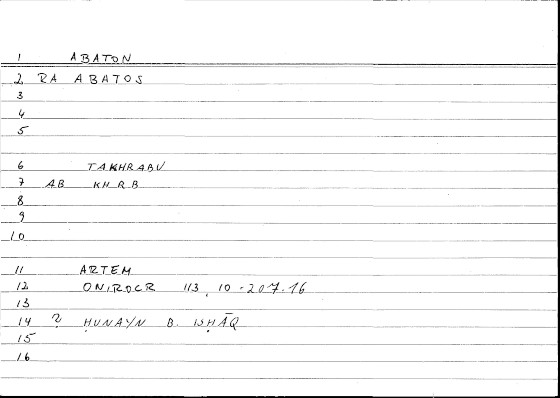 1 ABATON
2 RA ABATOS
3
4
5
6 TAKHRABU
7 AB KHRB
8
9
10
11 ARTEM
12 ONIROCR 113, 10 - 207.16
13
14 ? ḤUNAYN B. ISḤĀQ
15
16